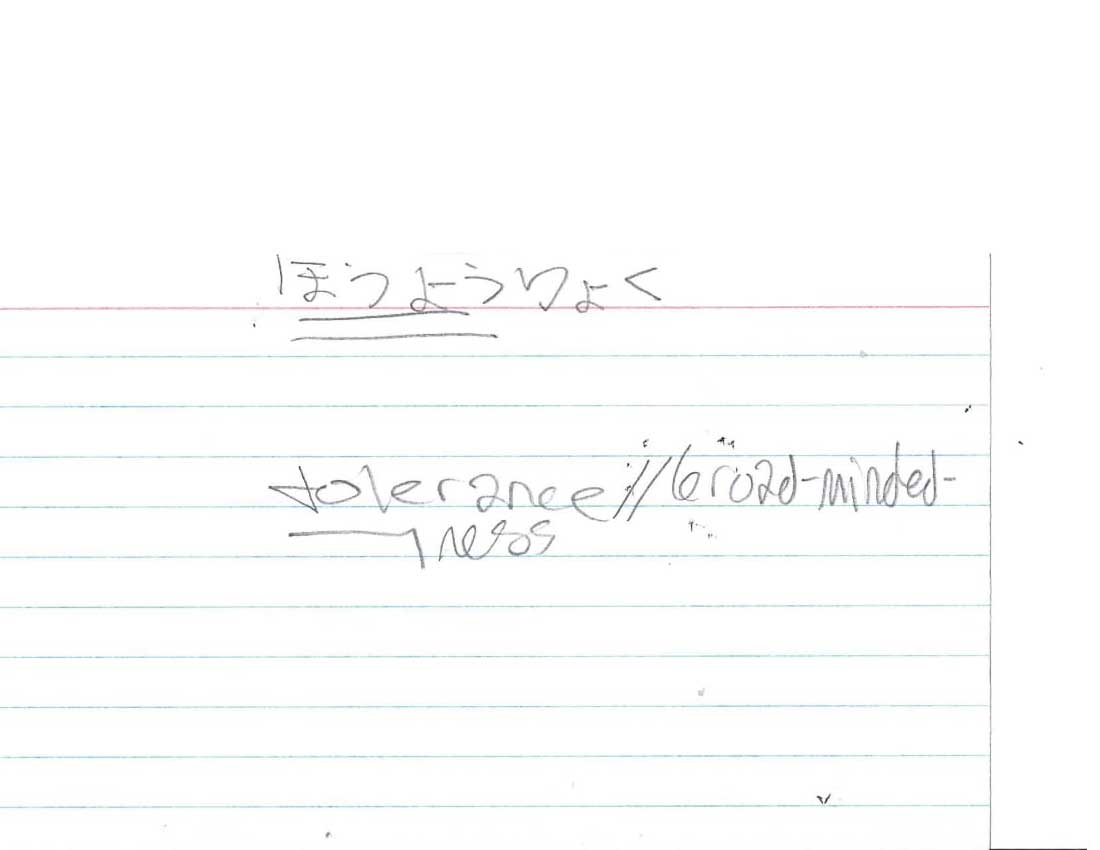 ほうようりょく
tolerance;//broad-minded-
ness